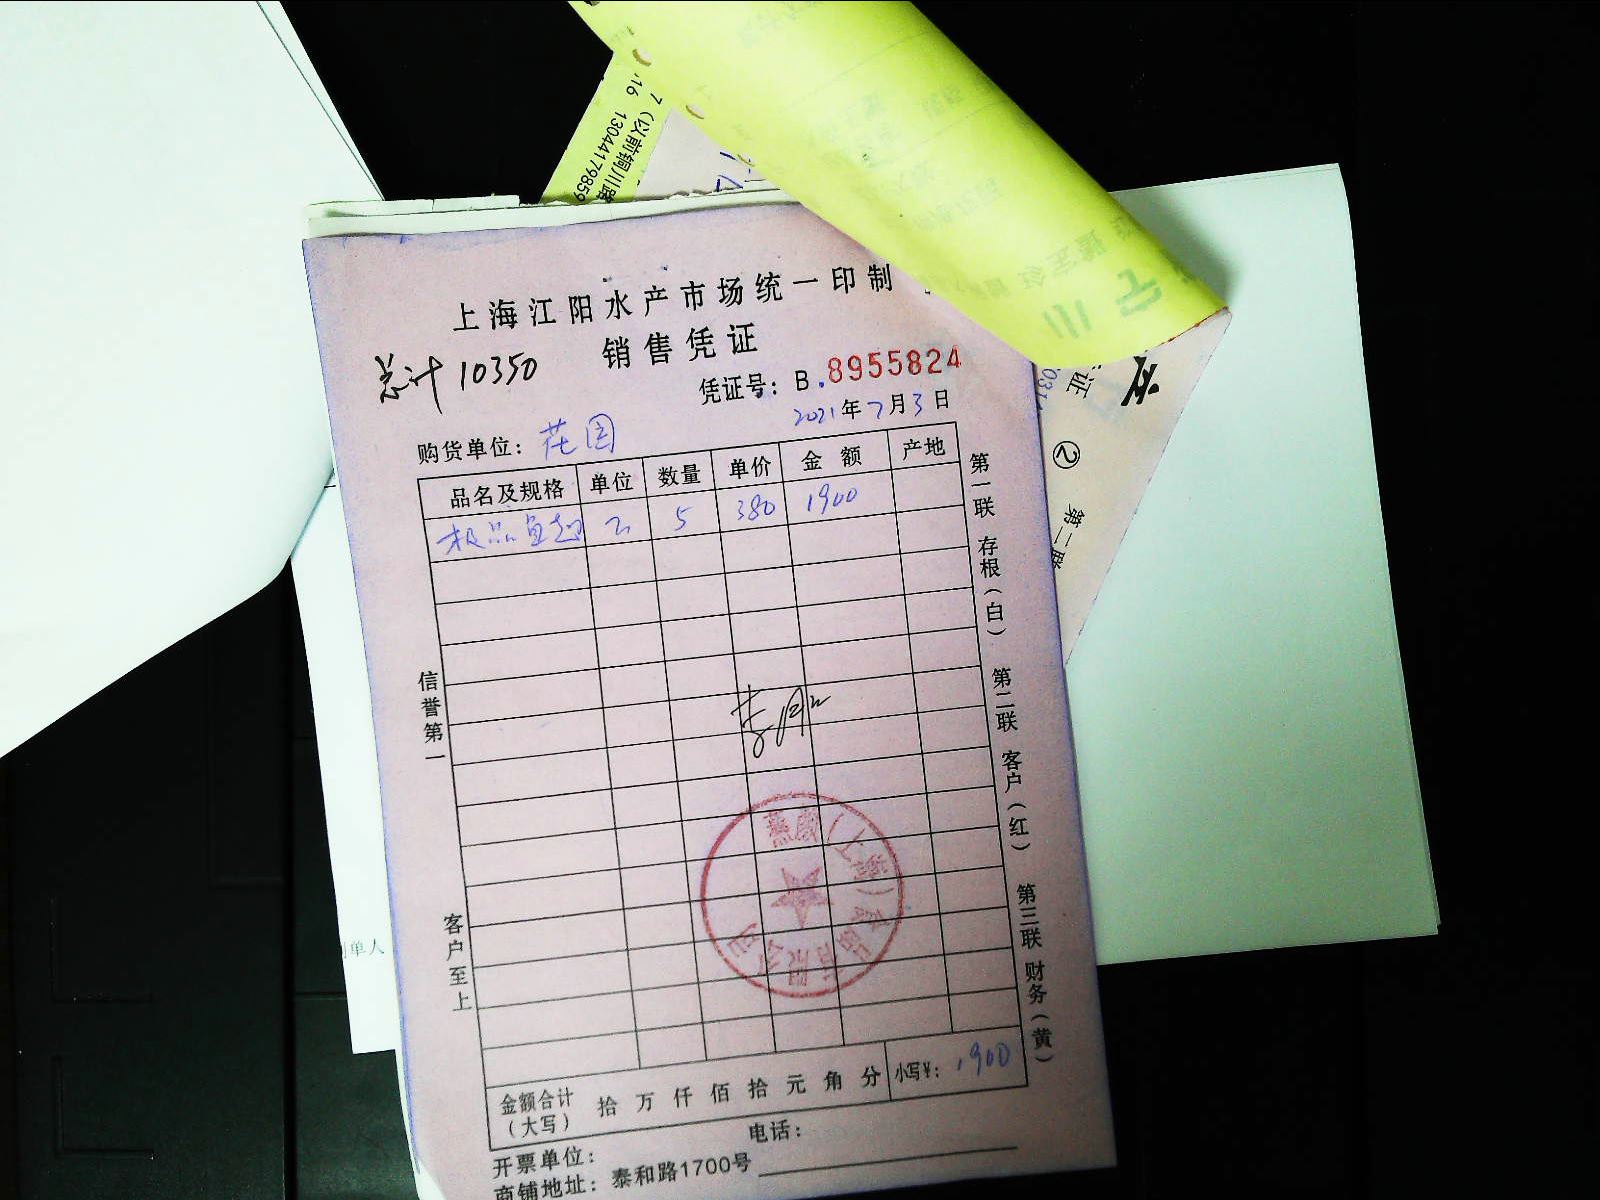 7（以前铜川路
16 13044179859
上海江阳水产市场统一印制
销售凭证
总计 10350
凭证号：B.8955824
2021年7月3日
购货单位：花园
品名及规格 单位 数量 单价 金额 产地
极品鱼翅 5 380 1900
第一联 存根（白） 第二联 客户（红） 第三联 财务（黄）
信誉第一
客户至上
金额合计（大写） 拾 万 仟 佰 拾 元 角 分 小写¥：1900
电话：
开票单位：
商铺地址：泰和路1700号
证
② 第二联
单人